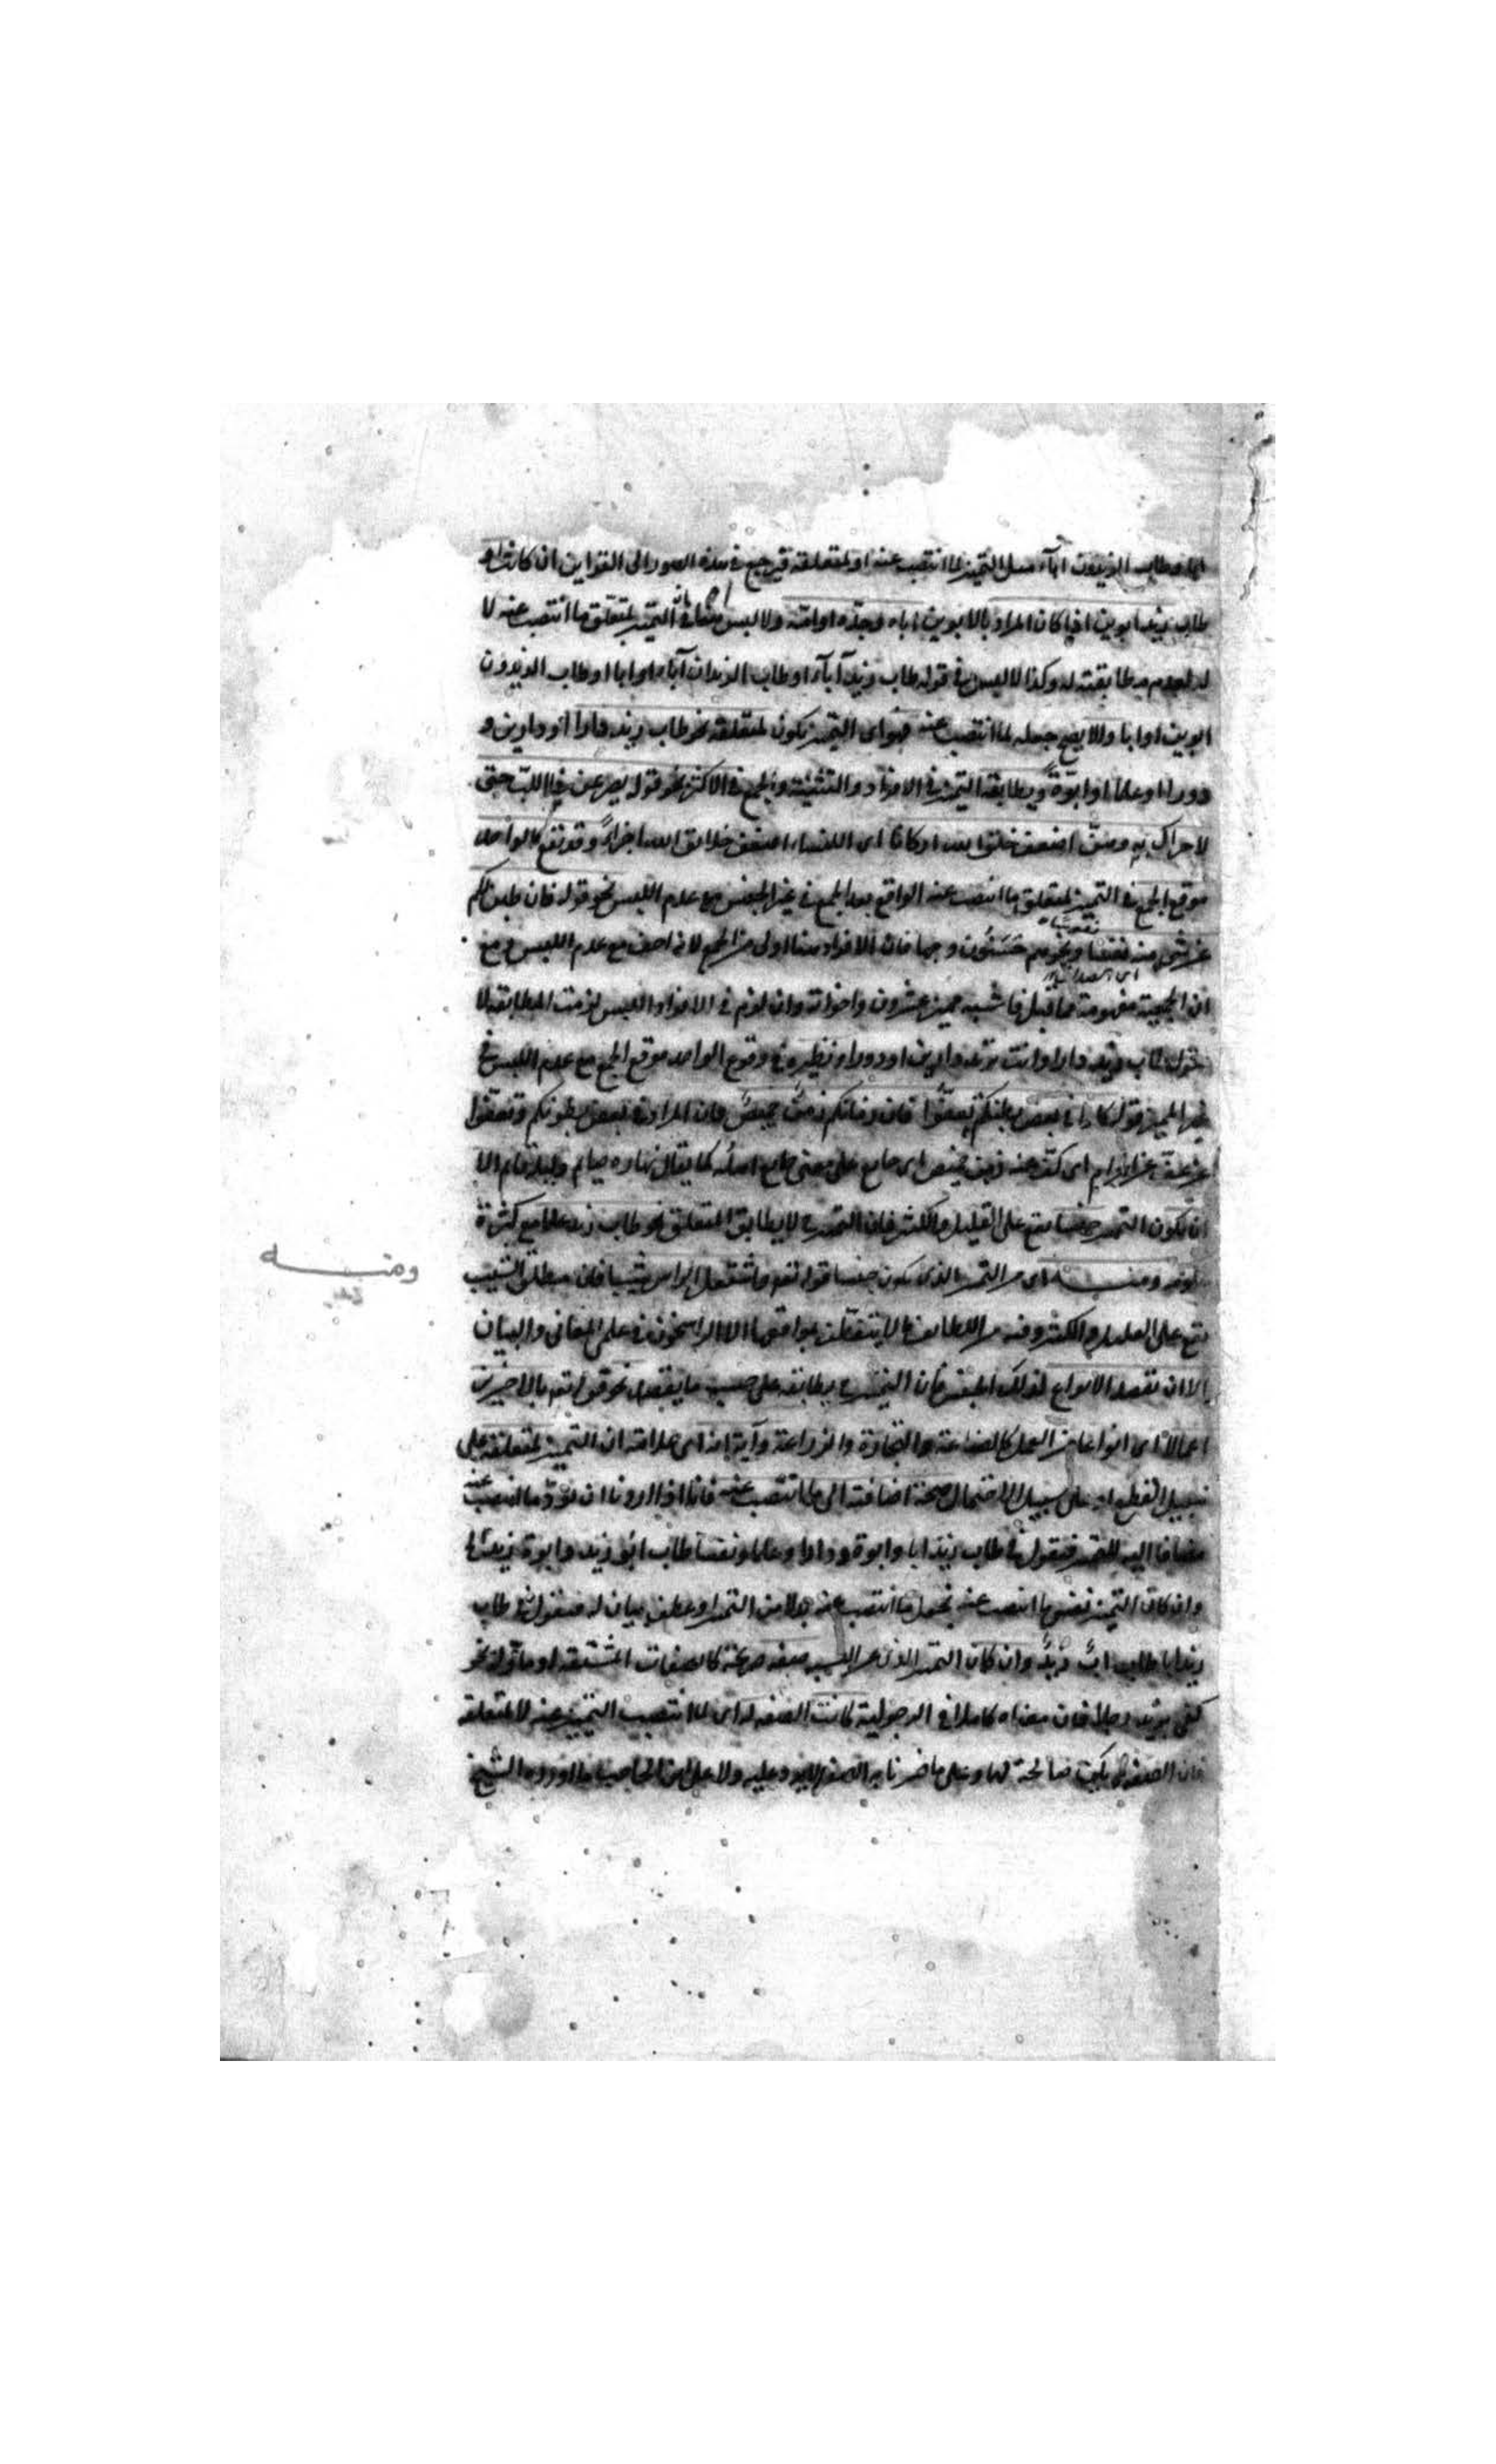 طاب الزيدون آباء هل التمييز لما انتصب عنه او لمتعلقه فيرجع في هذه الصور الى القراين ان كانت نحو
طاب زيد ابوين اذا كان المراد بالابوين اباه وجده او امه ولا لبس هنا في ان التميز لمتعلق ما انتصب عنه لا
له لعدم مطابقته له وكذا لا لبس في قوله طاب زيد آباء او طاب الزيدان آباء او ابا او طاب الزيدون
ابوين او ابا والا يصح جعله لما انتصب عنه فهو اى التميز يكون لمتعلقه نحو طاب زيد دارا او دارين و
دورا او علما او ابوة ويطابقه التميز في الافراد والتثنية والجمع في الاكثر نحو قوله يصرعن ذا اللب حتى
لا حراك به وهن اضعف خلق الله اركانا اى النساء اضعف خلائق الله اجزاء وقد يقع الواحد
موقع الجمع في التميز لمتعلق ما انتصب عنه الواقع بعد الجمع في غير الجنس مع عدم اللبس نحو قوله فان طبن لكم
عن شى منه نفسا ونحو هم حسنون وجها فان الافراد هنا اولى من الجمع لانه اخف مع عدم اللبس ومع
ان الجمعية مفهومة مما قبل فاشبه مميز عشرون واخواته وان لزم في الافراد اللبس لزمت المطابقة لا
تقول طاب زيد دارا وانت تريد دارين او دورا ونظيره في وقوع الواحد موقع الجمع مع عدم اللبس في
غير المميز قوله كلوا في بعض بطنكم تعفوا فان زمانكم زمن خميص فان المراد في بعض بطونكم وتعفوا
من عف عن الحرام اى كف عنه زمن خميص اى جايع على معنى جايع اهله كما يقال نهاره صايم وليله قايم الا
ان يكون التميز جنسا يقع على القليل والكثير فان التميز لا يطابق المتعلق نحو طاب زيد علما مع كثرة
علومه ومنه اى من التميز الذى يكون جنسا قوله تعم واشتعل الراس شيبا فان مطلق الشيب
يقع على القليل والكثير وفيه من اللطايف ما لا يتفطن لمواقعها الا الراسخون في علمى المعانى والبيان
الا ان يقصد الانواع لذلك الجنس فان التميز يطابقه على حسب ما يقصد نحو قوله تعم بالاخسرين
اعمالا اى انواعا من العمل كالصناعة والتجارة والزراعة وآية انه اى علامته ان التميز لمتعلقه على
سبيل القطع او على سبيل الاحتمال صحة اضافته الى ما انتصب عنه فانا اذا اردنا ان نرد ما انتصب عنه
مضافا اليه للتميز فنقول في طاب زيد ابا وابوة ودارا وعلما ونفسا طاب ابو زيد وابوة زيد
وان كان التميز نفس ما انتصب عنه نجعل ما انتصب عنه بدلا من التميز او عطف بيان له فنقول في طاب
زيد ابا طاب اب زيد وان كان التميز الذى عن النسبة صفة صريحة كالصفات المشتقة او ماولة نحو
كفى بزيد رجلا فان معناه كاملا في الرجولية كانت الصفة له اى لما انتصب التمييز عنه لا لمتعلقه
فان الصفة صالحة لهما وعلى ما فسرنا به الصفة لا يرد عليه ولا على ابن الحاجب ما اورده الشيخ
ومنه